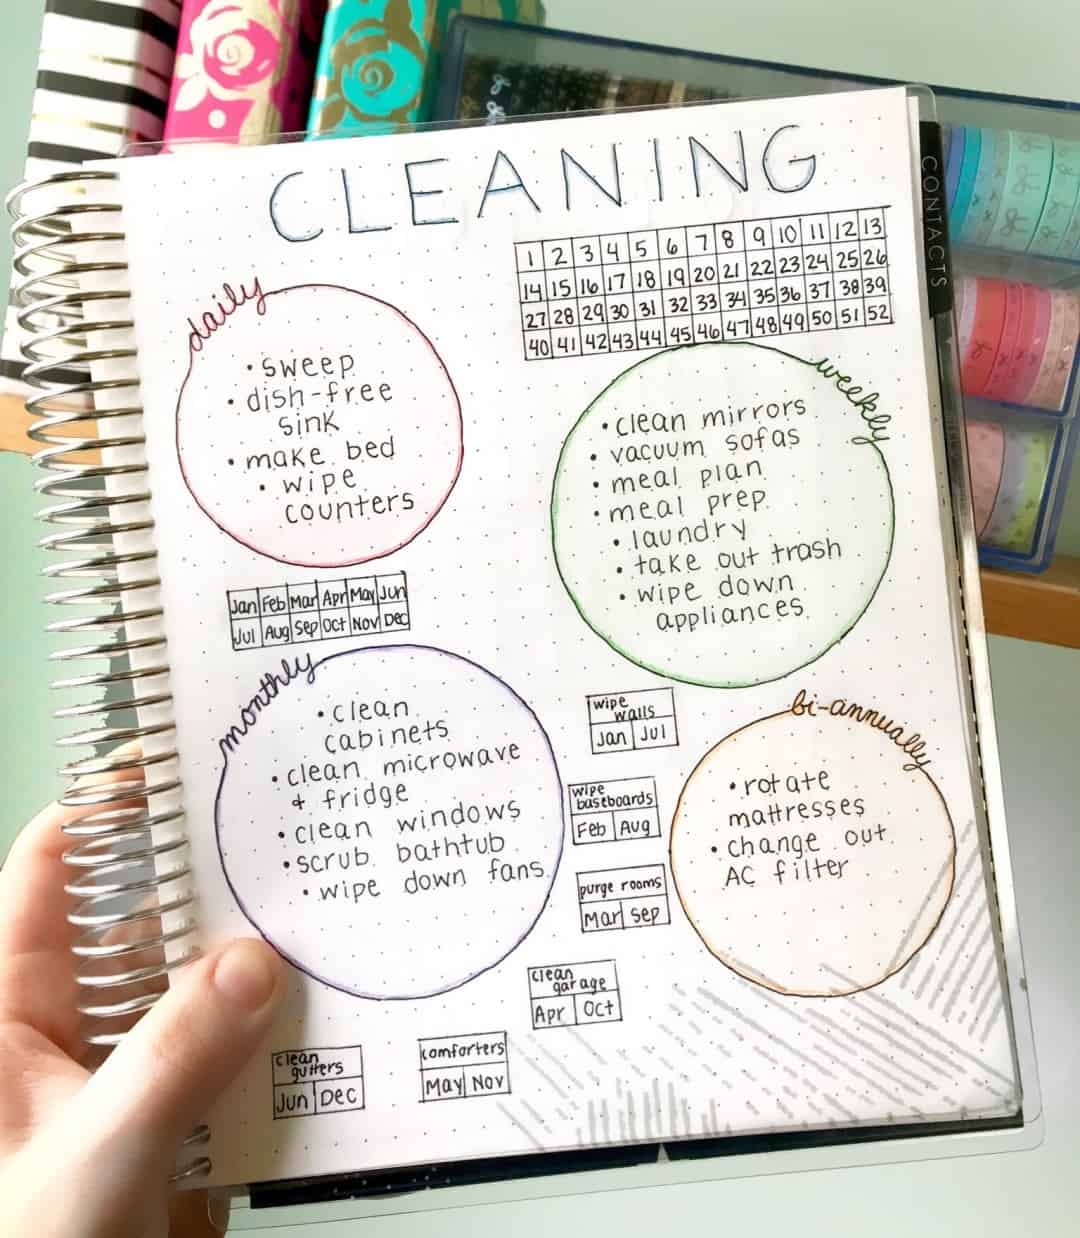 CLEANING
CONTACTS
1 2 3 4 5 6 7 8 9 10 11 12 13
14 15 16 17 18 19 20 21 22 23 24 25 26
27 28 29 30 31 32 33 34 35 36 37 38 39
40 41 42 43 44 45 46 47 48 49 50 51 52
daily
• sweep
• dish-free
sink
• make bed
• wipe
counters
weekly
• clean mirrors
• vacuum sofas
• meal plan
• meal prep
• laundry
• take out trash
• wipe down
appliances
Jan Feb Mar Apr May Jun
Jul Aug Sep Oct Nov Dec
monthly
• clean
cabinets
• clean microwave
+ fridge
• clean windows
• scrub bathtub
• wipe down fans
wipe
walls
Jan Jul
wipe
baseboards
Feb Aug
purge rooms
Mar Sep
clean
garage
Apr Oct
bi-annually
• rotate
mattresses
• change out
AC filter
clean
gutters
Jun Dec
comforters
May Nov